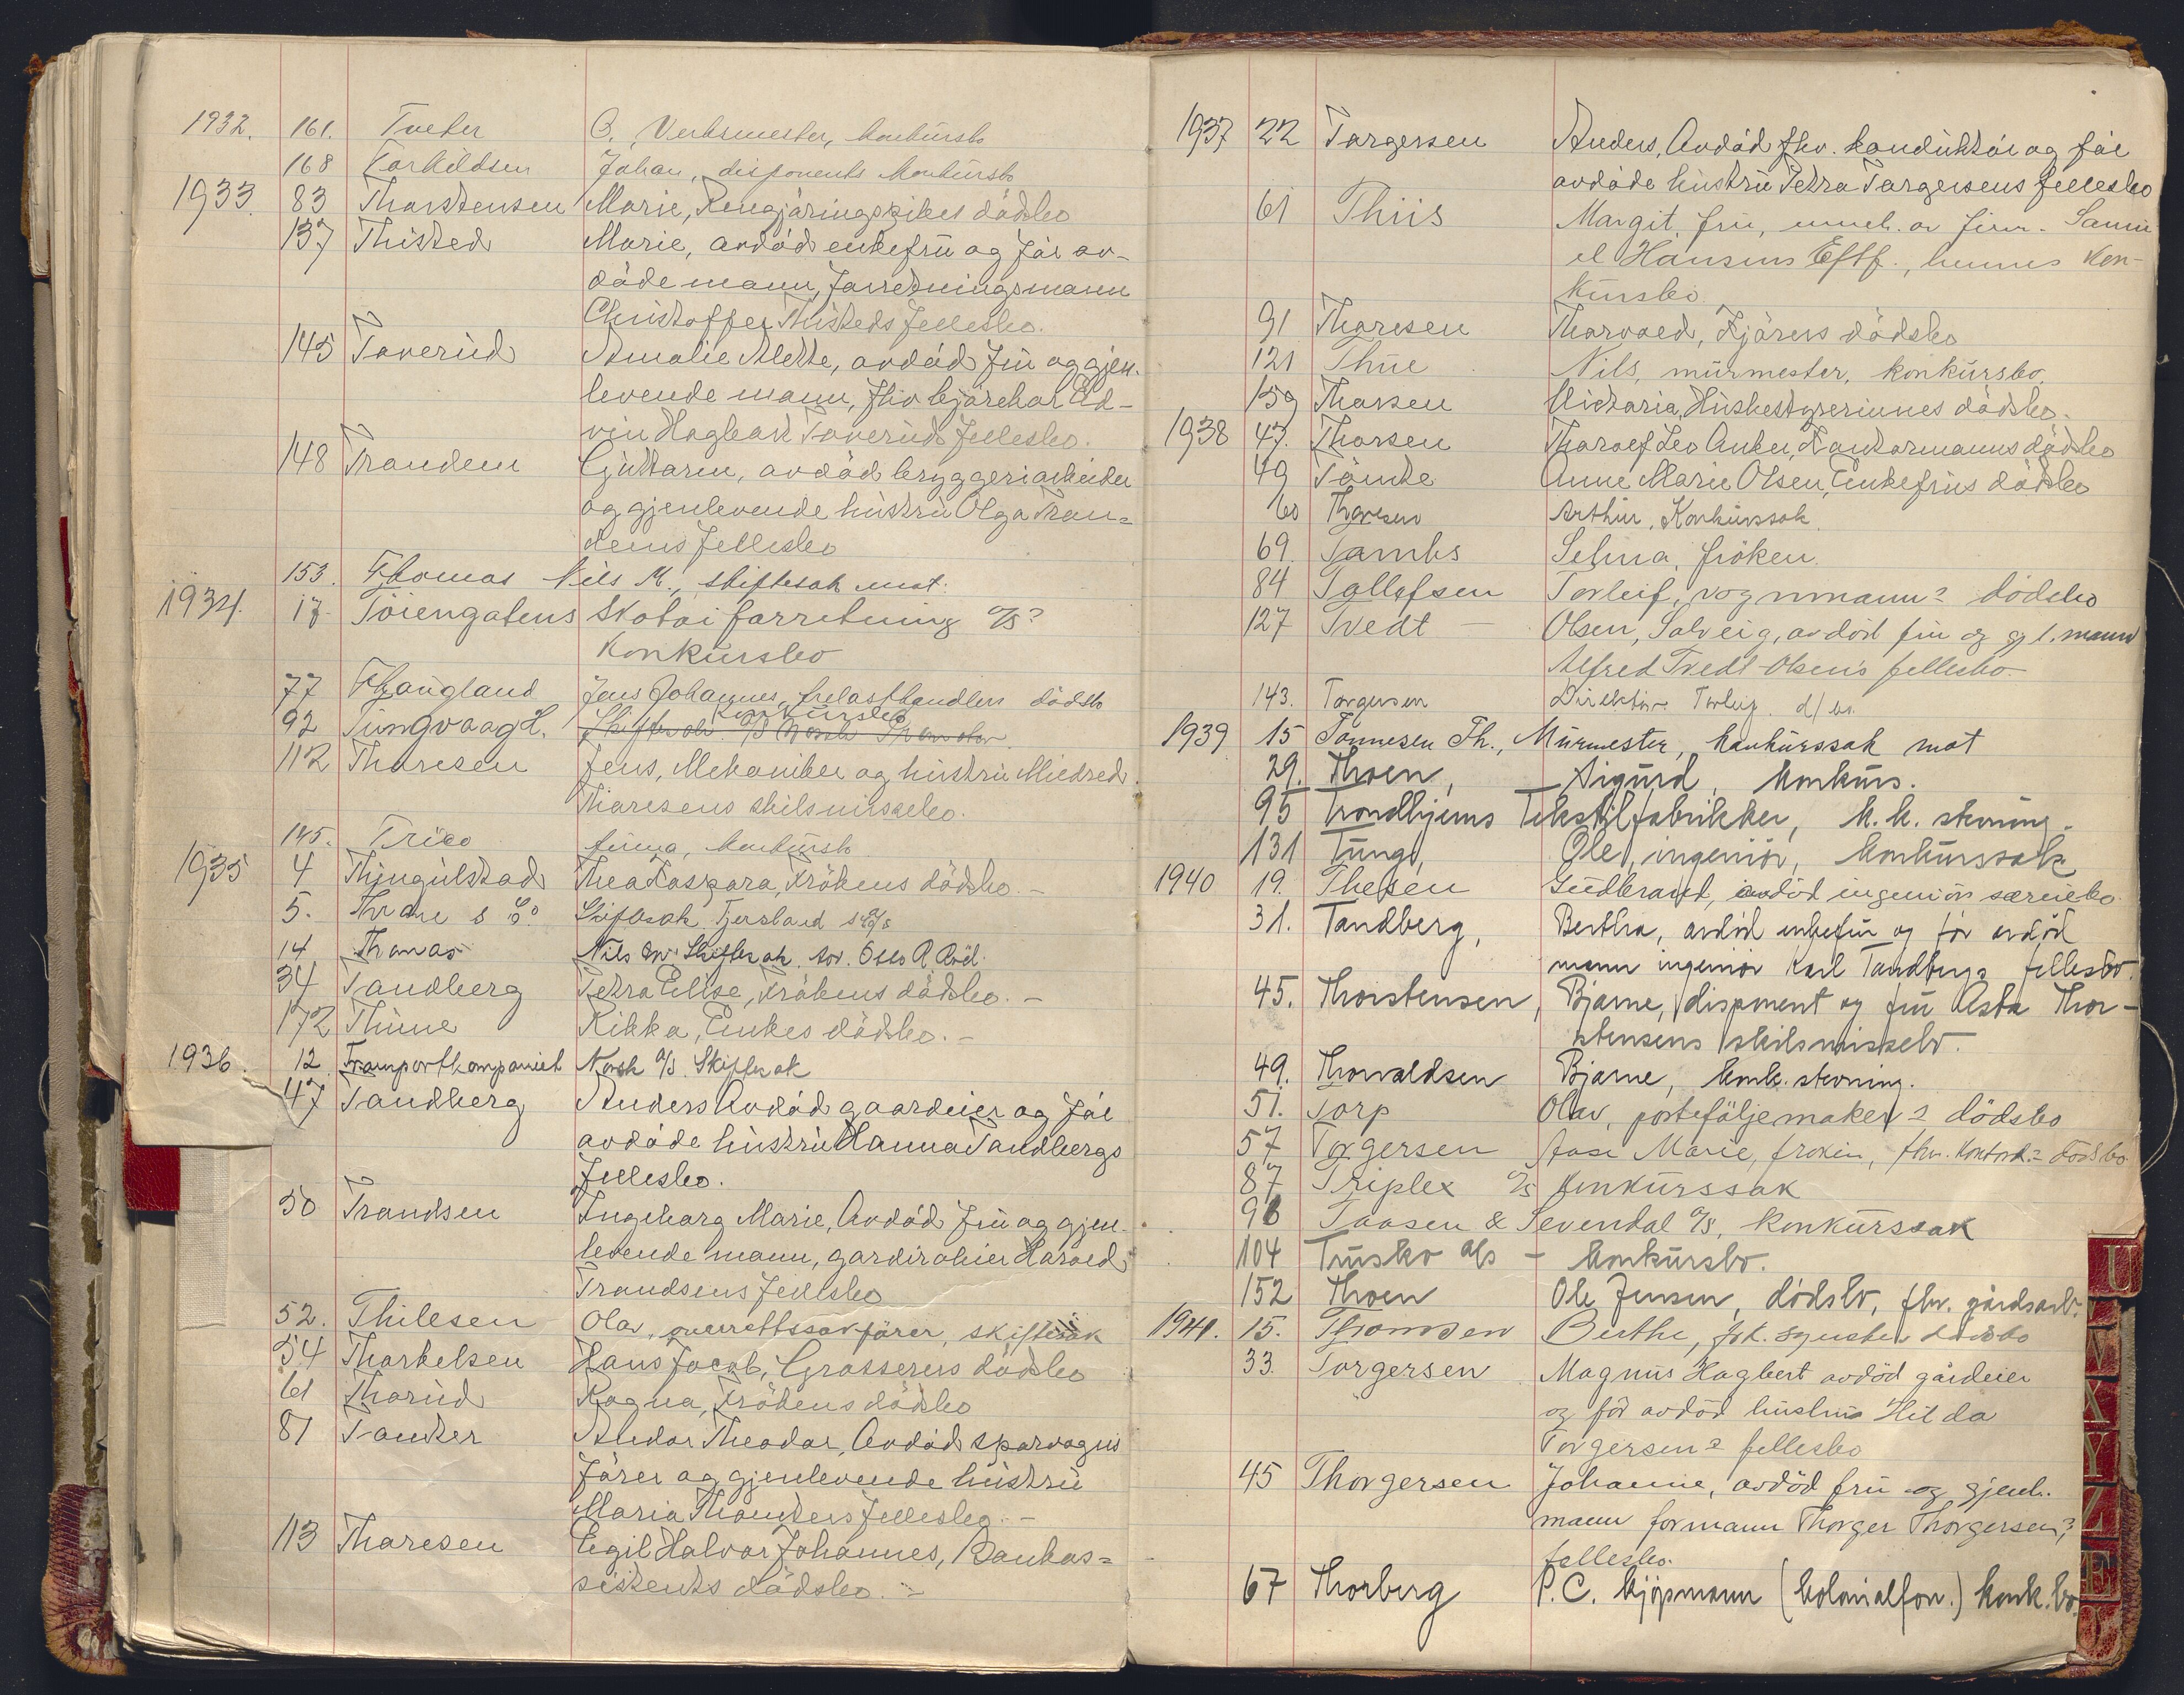 1932. 161. Tveter B. Verksmester, konkursbo
168 Torkildsen Johan, disponents konkursbo
1933. 83 Thorstensen Marie, Rengjøringspikes dødsbo
137 Thisted Marie, avdød enkefru og før av-
døde mann, forretningsmann
Christoffer Thisteds fellesbo.
145 Toverud Amalie Alette, avdød fru og gjen-
levende mann, fhv kjørekar Ed-
vin Hagbart Toverud fellesbo.
148 Trandem Guttorm, avdød bryggeriarbeider
og gjenlevende hustru Olga Tran=
dems fellesbo
153. Thomas Nils M., skiftesak mot.
1934. 17. Töiengatens Skotöi forretning A/S?
Konkursbo
77 Thaugland Jens Johannes, trelasthandlers dødsbo
konkursbo
92 Tungvaag H. Skiftesak
112 Thoresen Jens, Mekaniker og hustru Mildred
Thoresens skilsmissebo.
145. Trico firma, konkursbo
1935 4 Thingulstad Thea Kaspara, Frøkens dødsbo. -
5. Thrane & Co. Skiftesak,
14 Thomas Nils M. Skiftesak.
34 Tandberg Petra Elise, Frøkens dødsbo. -
172 Thune Rikka, Enkes dødsbo. -
1936. 12. Transportkompaniet Norsk A/S. Skiftesak
47 Tandberg Anders Avdød gaardeier og før
avdøde hustru Hanna Tandbergs
fellesbo.
50 Trandsen Ingeborg Marie, Avdød fru og gjen-
levende mann, gardirobier Harald
Trandsens fellesbo
52. Thilesen Olav, overrettssakfører, skiftesak
54 Thorkelsen Hans Jacob, Grosserers dødsbo
61 Thorud Ragna, Frøkens dødsbo
87 Tander Andor Theodor, Avdød sporvogns
fører og gjenlevende hustru
Maria Thanders fellesbo. -
113 Thoresen Eegil Halvor Johannes, Bankas=
sistents dødsbo. -
1937 22 Torgersen Anders, Avdød fhv. konduktør og før
avdøde hustru Petra Torgersens fellesbo
61 Thiis Margit, fru, inneh. av firm. Samu-
el Hansens Eftf., hennes kon-
kursbo
91 Thoresen Thorvald, Kjørers dødsbo
121 Thue Nils, murmester, konkursbo.
159 Thorsen Victoria, Husbestyrerinnes dødsbo.
1938 47. Thorsen Thorolf Leo Anker, Kontormanns dødsbo
49 Tömte Anne Marie Olsen, Enkefrus dødsbo
60 Thoresen Arthur, Konkurssak.
69. Tambs Selma, fröken.
84 Tollefsen Torleif, vognmanns dødsbo
127 Tvedt - Olsen, Solveig, avdød fru og gjl. mann
Alfred Tvedt-Olsen's fellesbo.
143. Torgersen Direktör Torleif. d/bo.
1939 15 Tønnesen Th., Murmester, konkurssak mot
29. Thoen, Sigurd, konkurs.
95 Trondhjems Tekstilfabrikker, k.k. stevning.
131 Tunge, Ole, ingeniør, konkurssak
1940 19. Thesen Gudbrand, avdød ingeniörs særeiebo.
31. Tandberg, Bertha, avdød enkefru og før avdød
mann ingeniør Karl Tandbergs fellesbo.
45. Thorstensen, Bjarne, disponent og fru Asta Thor-
stensens skilsmissebo.
49. Thorvaldsen Bjarne, konk. stevning.
51. Torp Olav, porteföljemakers dödsbo
57 Torgersen Aase Marie, frøken, fhv. kontord.s dödsbo.
87 Triplex A/S konkurssak
96 Taasen & Sevendal A/S, konkurssak
104 Trusko A/S - konkursbo.
152 Thoen Ole Jensen, dödsbo, fhv. gårdsarb.
1941. 15. Thomsen Berthe, frk. syerskes dödsbo
33. Torgersen Magnus Hagbert avdöd gårdeier
og för avdöd hustru Hilda
Torgersens fellesbo
45 Thorgersen Johanne, avdöd fru og gjenl.
mann formann Thorger Thorgersens
fellesbo.
67 Thorberg P. C. kjøpmann (kolonialforr.) konk.bo.
U
V
X
Y
Z
Æ